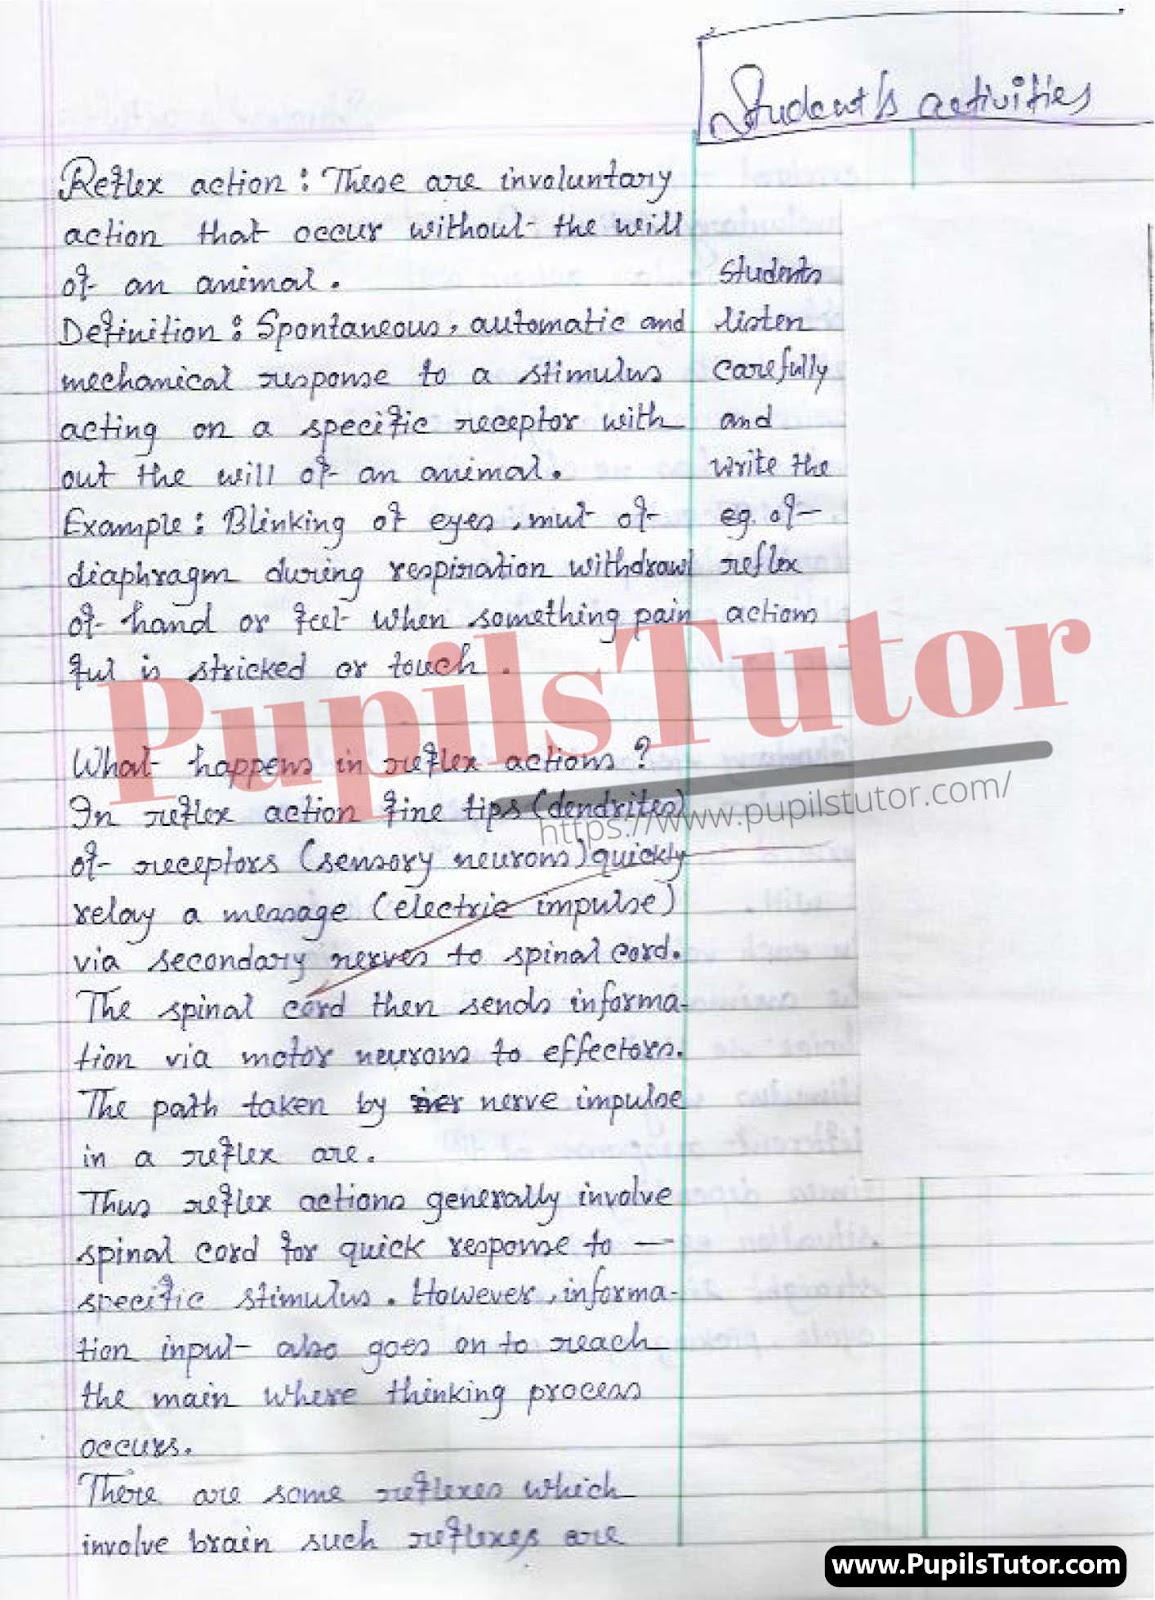 Student's activities
Reflex action : These are involuntary
action that occur without the will
of an animal.
Definition : Spontaneous, automatic and
mechanical response to a stimulus
acting on a specific receptor with
out the will of an animal.
Example : Blinking of eyes, mut of
diaphragm during respiration withdrawl
of hand or feel when something pain
ful is stricked or touch.
What happens in reflex actions ?
In reflex action fine tips (dendrites)
of receptors (sensory neurons) quickly
relay a message (electric impulse)
via secondary nerves to spinal cord.
The spinal cord then sends informa-
tion via motor neurons to effectors.
The path taken by nerve impulse
in a reflex are.
Thus reflex actions generally involve
spinal cord for quick response to —
specific stimulus. However, informa-
tion input also goes on to reach
the main where thinking process
occurs.
There are some reflexes which
involve brain such reflexes are
students
listen
carefully
and
write the
eg. of
reflex
actions
PupilsTutor
https://www.pupilstutor.com/
www.PupilsTutor.com